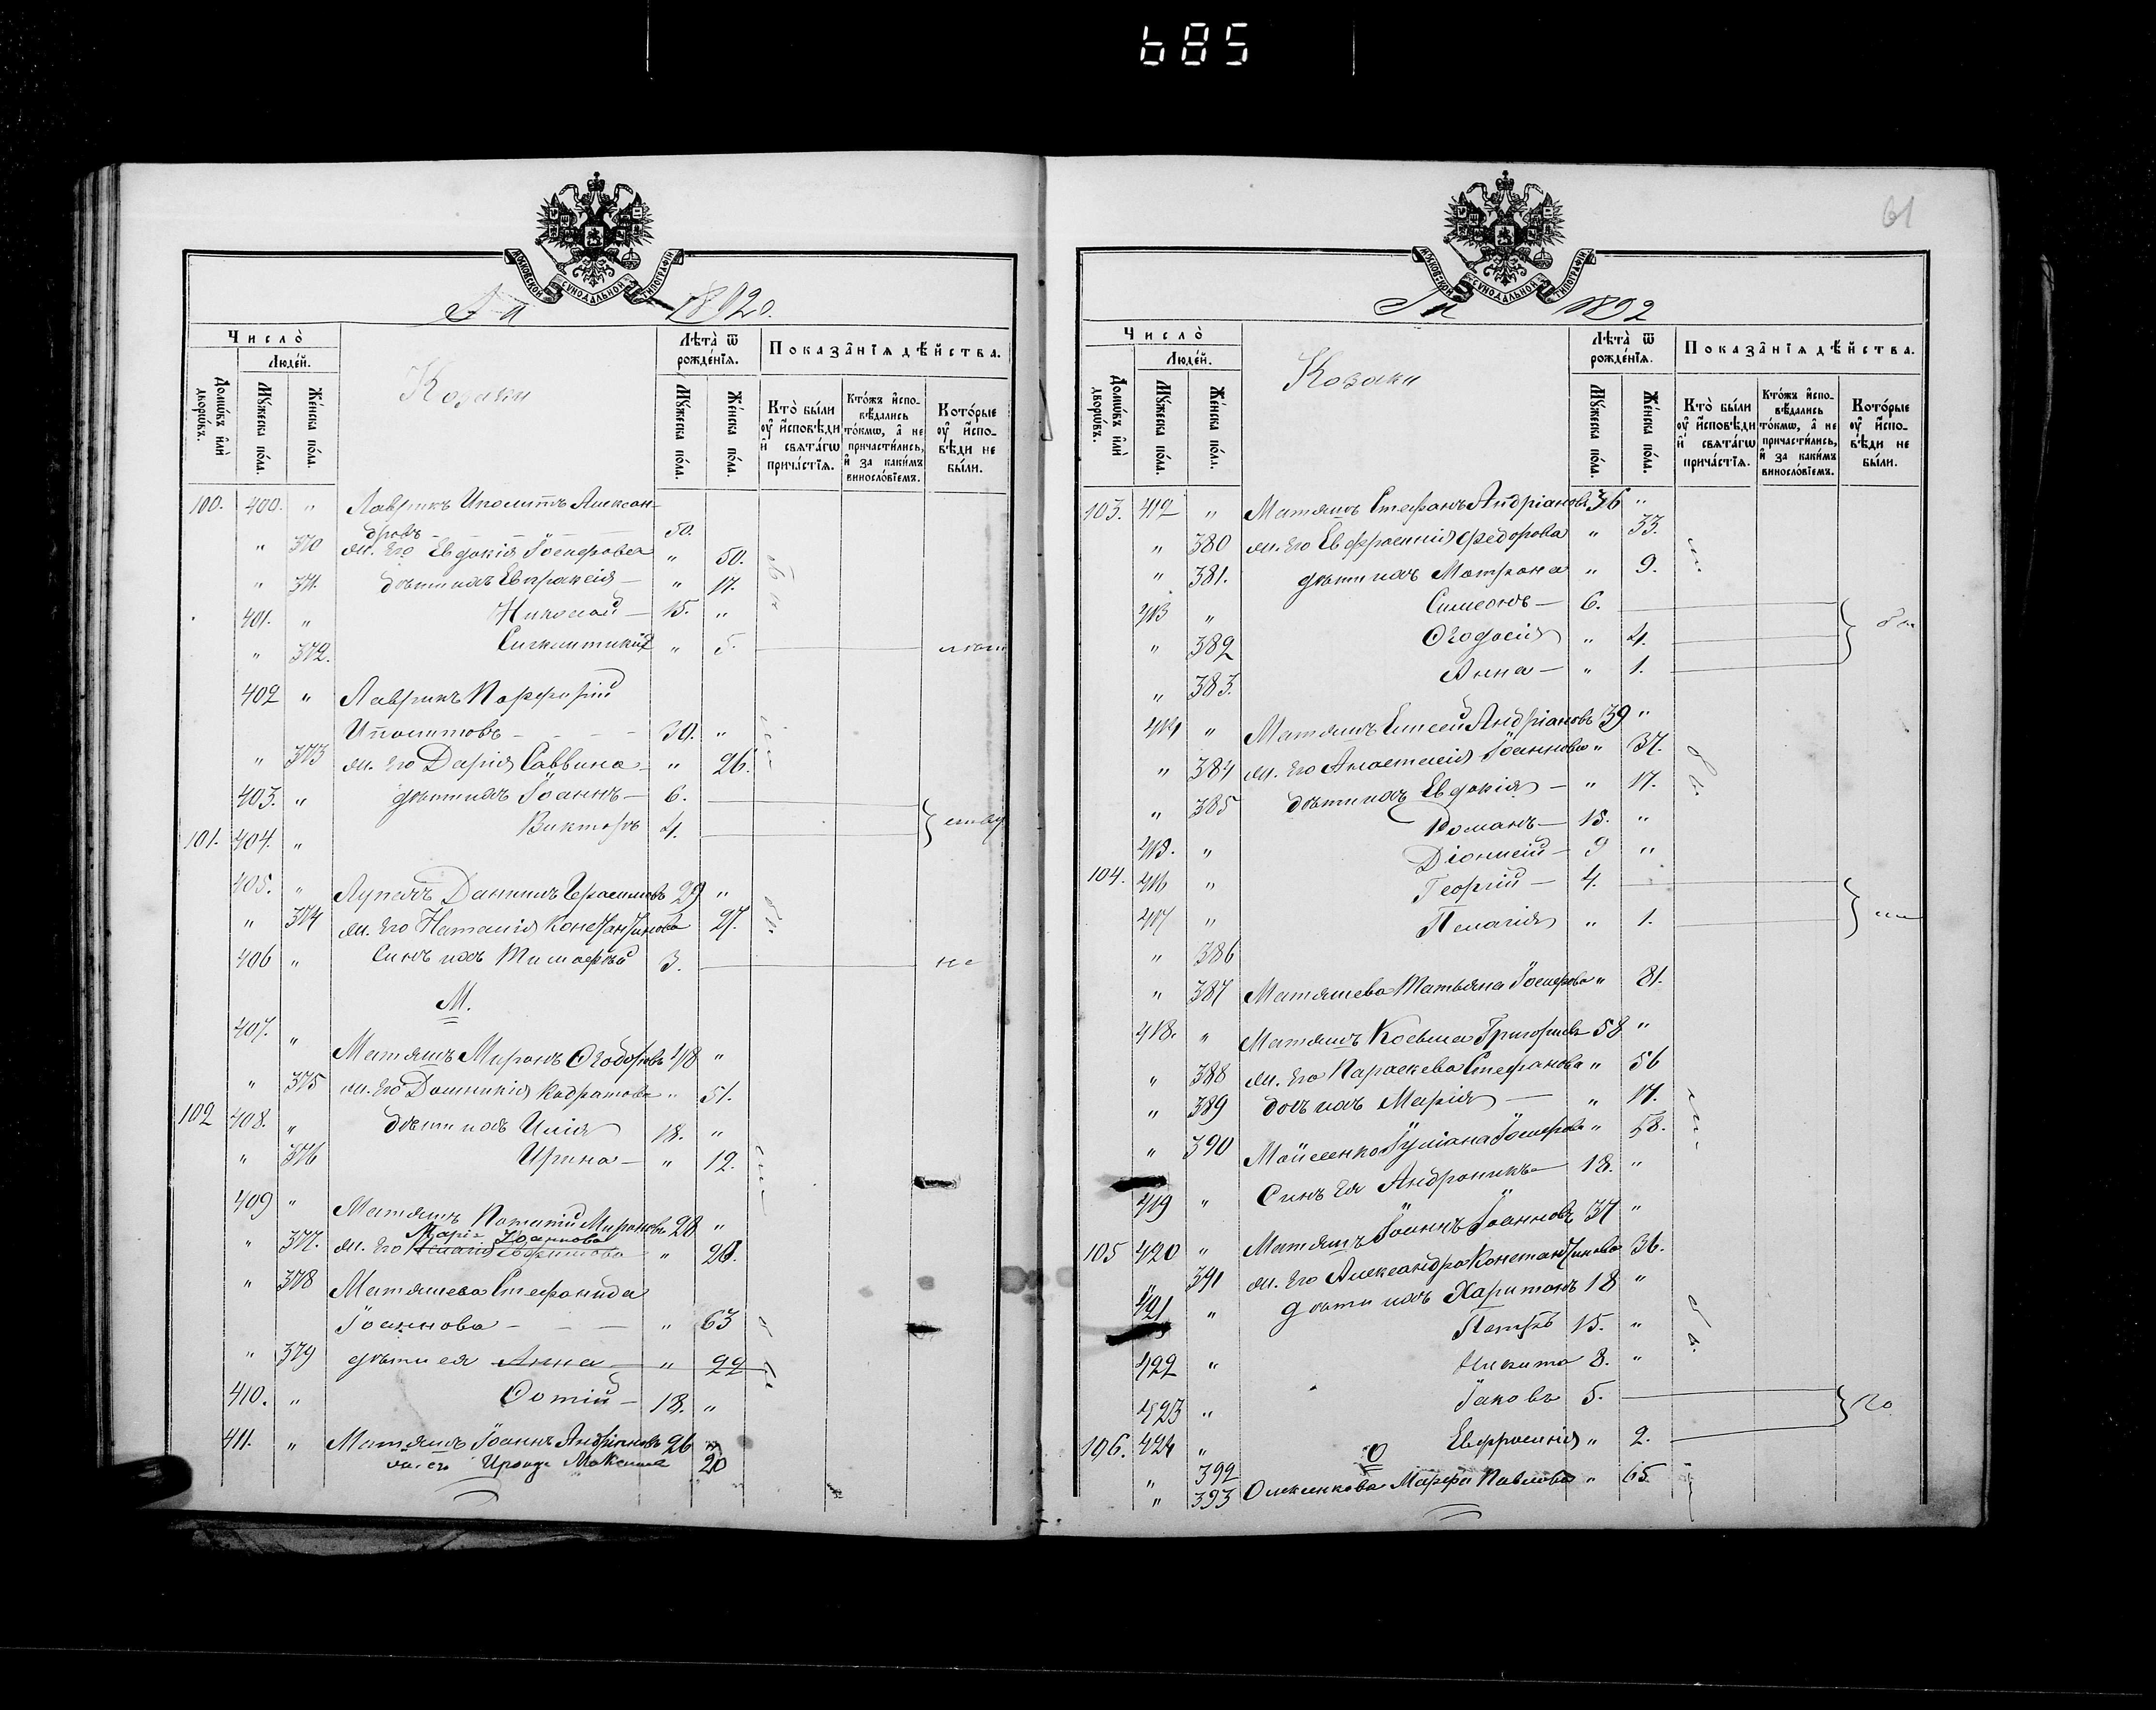 685
МОСКОВСКОЙ СУНОДАЛЬНОЙ ТИПОГРАФІИ
1892
Число̀
Людей.
Домѡвъ или дворѡвъ.
Мужеска пола.
Женска пола.
Козаки
Лѣта ѿ рожденїѧ.
Мужеска пола.
Женска пола.
Показанїѧ дѣйства.
Кто были оу исповѣди и свѧтагѡ причастїѧ.
Ктожъ исповѣдались токмѡ, а не причастились, и за какимъ винословїемъ.
Которые оу исповѣди не были.
100. 400. " Лаврикъ Иполитъ Алексан-
дровъ 50.
" 370 ж. его Евдокія Іосифова " 50.
" 371. дѣти ихъ Евпраксія " 17.
401. " Николай 15. "
" 372. " 5.
402 " Лаврикъ Порфирій
Ипполитовъ 30. "
" 373 ж. его Дарія Саввина " 26.
403. " дѣти ихъ Іоаннъ 6.
101. 404. " Викторъ 4.
405. " Даніилъ Герасимовъ 29 "
" 374 ж. его Наталія Константинова 27.
406 " Сынъ ихъ Тимофей 3. не
М.
407. " Матяшъ Миронъ 48 "
" 375 ж. его Домникія " 51.
102 408. " дѣти ихъ Илія 18. "
" 376 Ирина " 12.
409 " Матяшъ Мироновъ 28 "
Марія Іоаннова
" 377. ж. его " 26.
" 378 Матяшева Стефанида
Іоаннова " 63
" 379 дѣти ея Анна " 22
410. " Фотій 18. "
411. " Матяшъ Іоаннъ Андріановъ 26 "
ж. его 20
61
МОСКОВСКОЙ СУНОДАЛЬНОЙ ТИПОГРАФІИ
1892
Число̀
Людей.
Домѡвъ или дворѡвъ.
Мужеска пола.
Женска пола.
Козаки
Лѣта ѿ рожденїѧ.
Мужеска пола.
Женска пола.
Показанїѧ дѣйства.
Кто были оу исповѣди и свѧтагѡ причастїѧ.
Ктожъ исповѣдались токмѡ, а не причастились, и за какимъ винословїемъ.
Которые оу исповѣди не были.
103. 412 " Матяшъ Стефанъ Андріановъ 36 "
" 380 ж. его Евфросинія Федорова " 33.
" 381. дѣти ихъ Матрона " 9.
413 " Симеонъ 6.
" 382 Феодосія " 4.
" 383. Анна " 1.
414 " Матяшъ Елисей Андріановъ 39 "
" 384 ж. его Анастасія Іоаннова " 37.
" 385 дѣти ихъ Евдокія " 17.
Романъ 15. "
415. " Діонисій 9 "
104. 416 " Георгій 4.
417 " Пелагія " 1.
" 386
" 387 Матяшева Татьяна Іосифова " 81.
418. " Матяшъ Косьма Григорьевъ 58 "
" 388 ж. его Параскева Стефанова " 56
" 389 дочь ихъ Марія " 17.
" 390 Мойсеенкова Іуліана Іосифова " 58.
419 " Сынъ ея Андроникъ 18. "
105 420 " Матяшъ Іоаннъ Іоанновъ 37 "
" 391 ж. его Александра Константинова 36.
421 " дѣти ихъ Харитонъ 18 "
Петръ 15. "
422 " Никита 8. "
423 " Іаковъ 5.
106. 424 " Евфросинія " 2.
О
" 392
" 393 Марфа Павлова " 65.